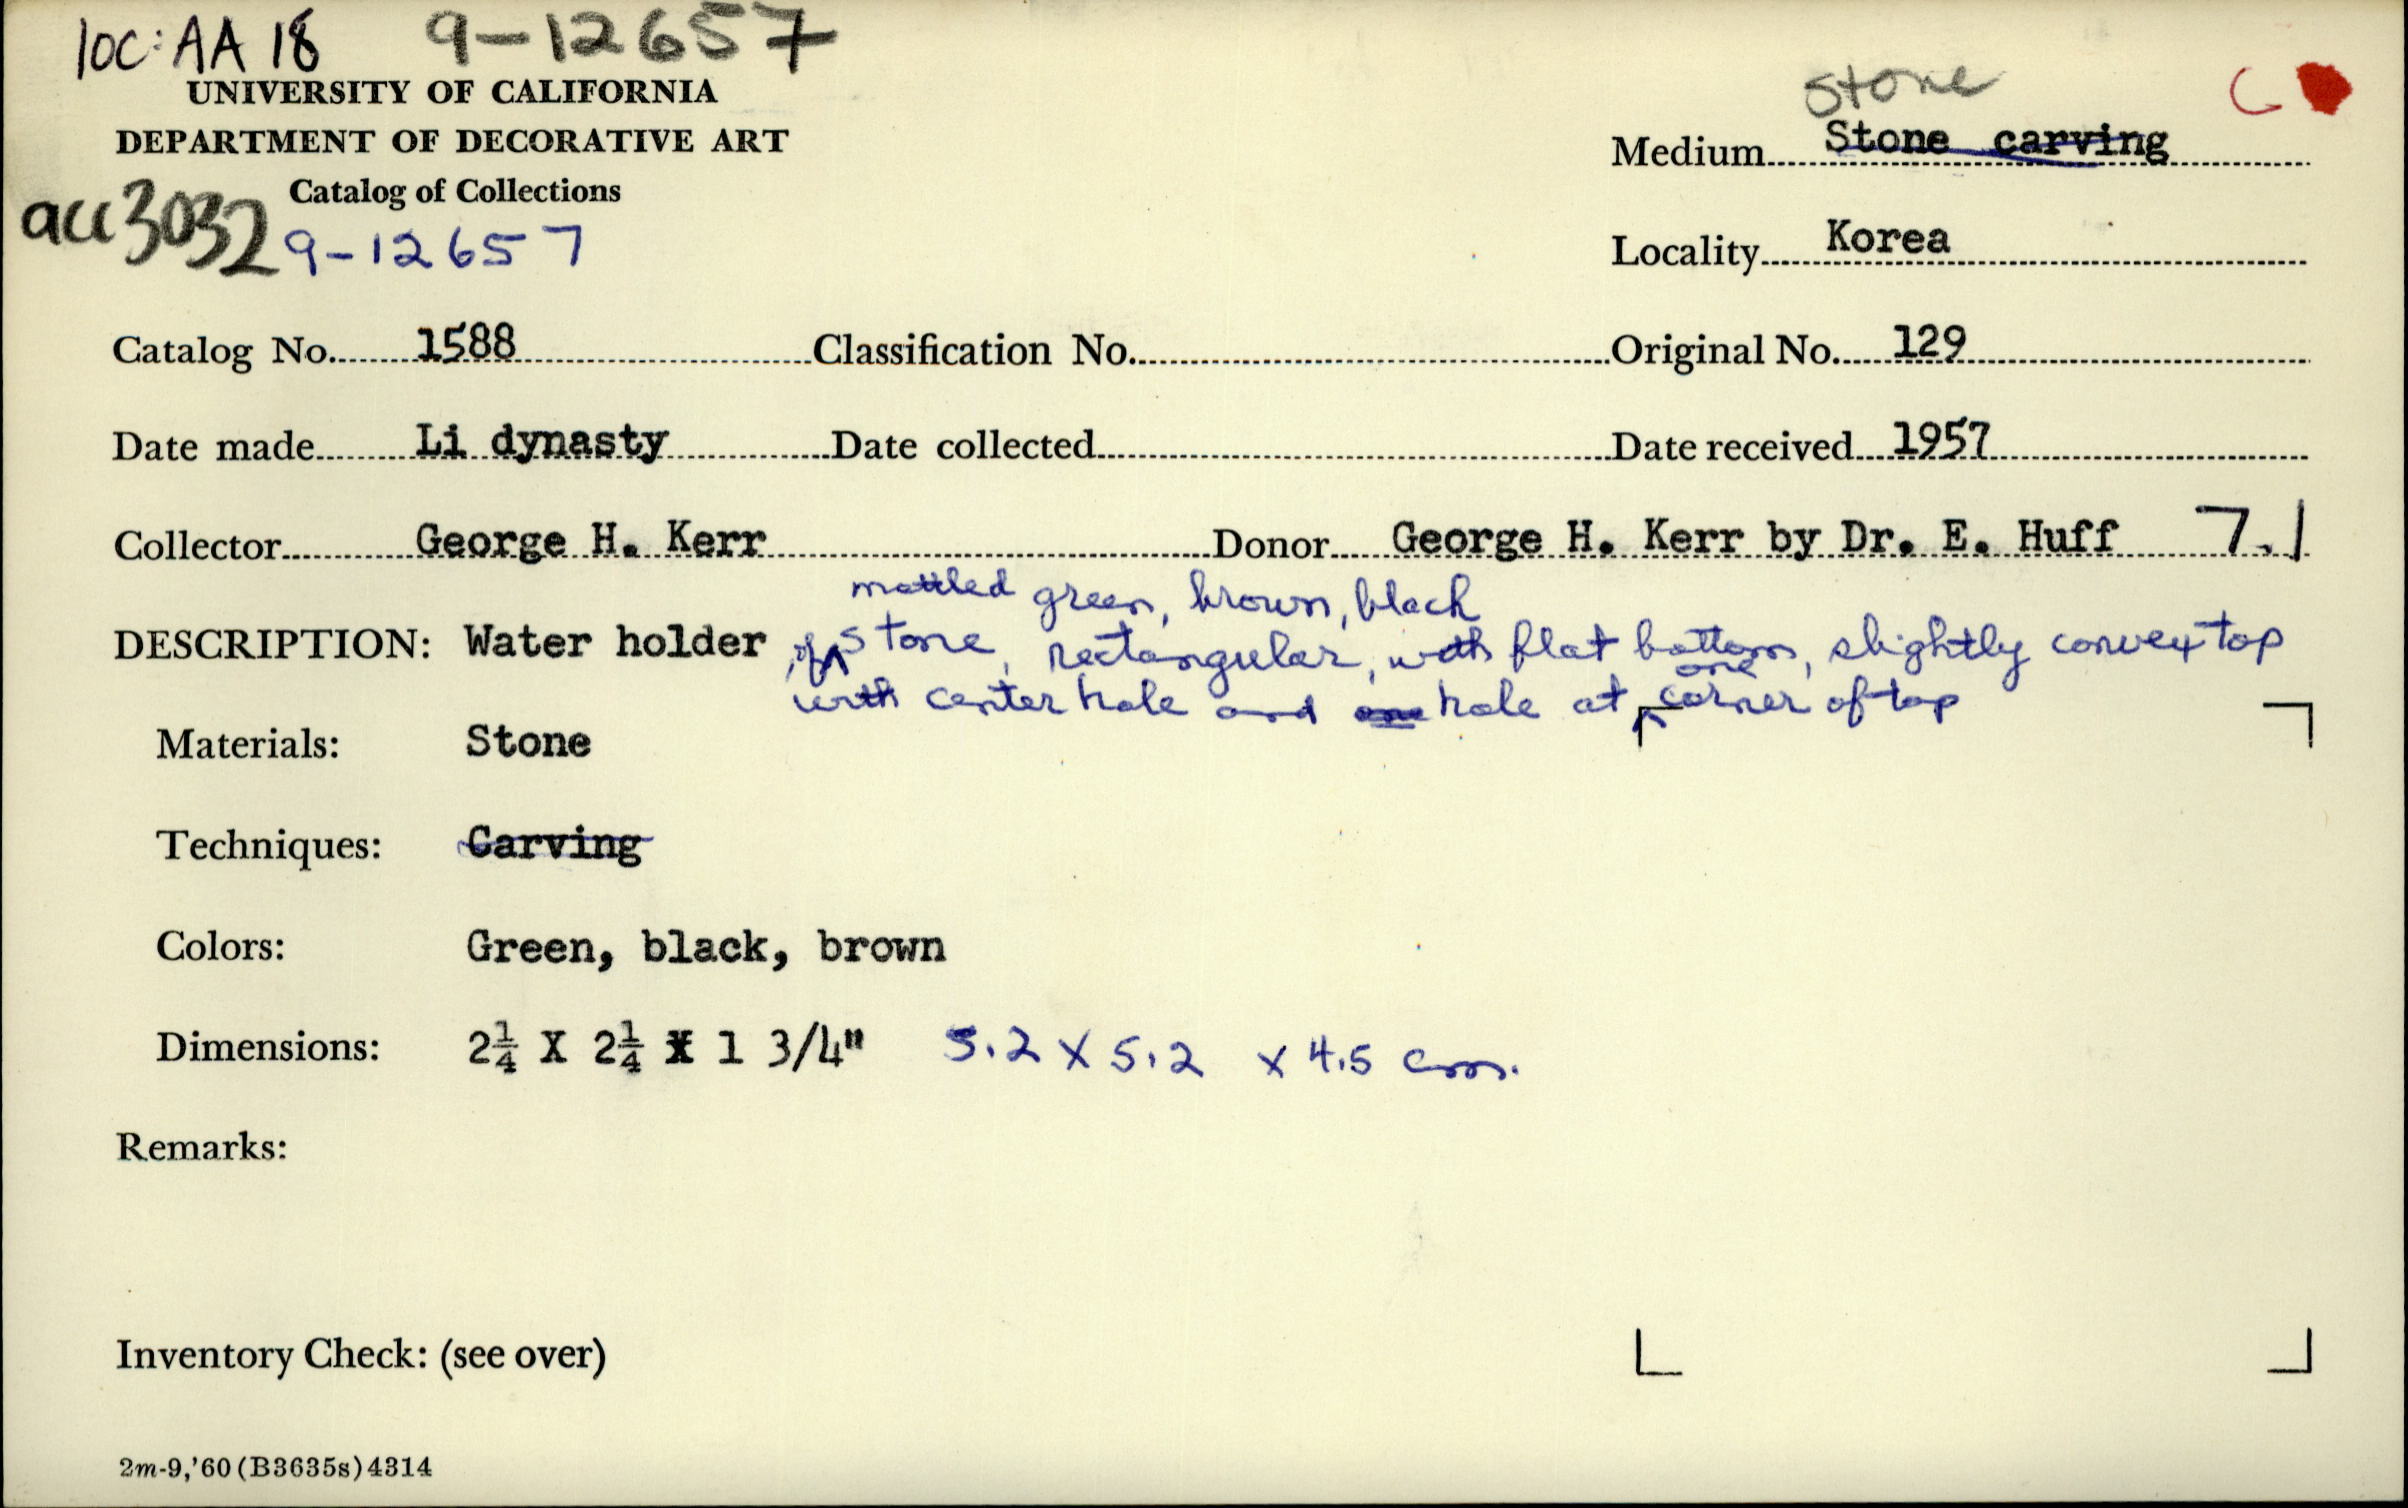 loc: AA 18 9-12657
UNIVERSITY OF CALIFORNIA
DEPARTMENT OF DECORATIVE ART
Catalog of Collections
acc 3032 9-12657
stone
Medium Stone carving
Locality Korea
Catalog No. 1588 Classification No. Original No. 129
Date made Li dynasty Date collected Date received 1957
Collector George H. Kerr Donor George H. Kerr by Dr. E. Huff 7.1
mottled green, brown, black
DESCRIPTION: Water holder, of stone, rectangular, with flat bottom, slightly convex top
one
with center hole and one hole at corner of top
Materials: Stone
Techniques: Carving
Colors: Green, black, brown
Dimensions: 2¼ X 2¼ X 1 3/4" 5.2 x 5.2 x 4.5 cm.
Remarks:
Inventory Check: (see over)
2m-9,'60 (B3635s) 4314